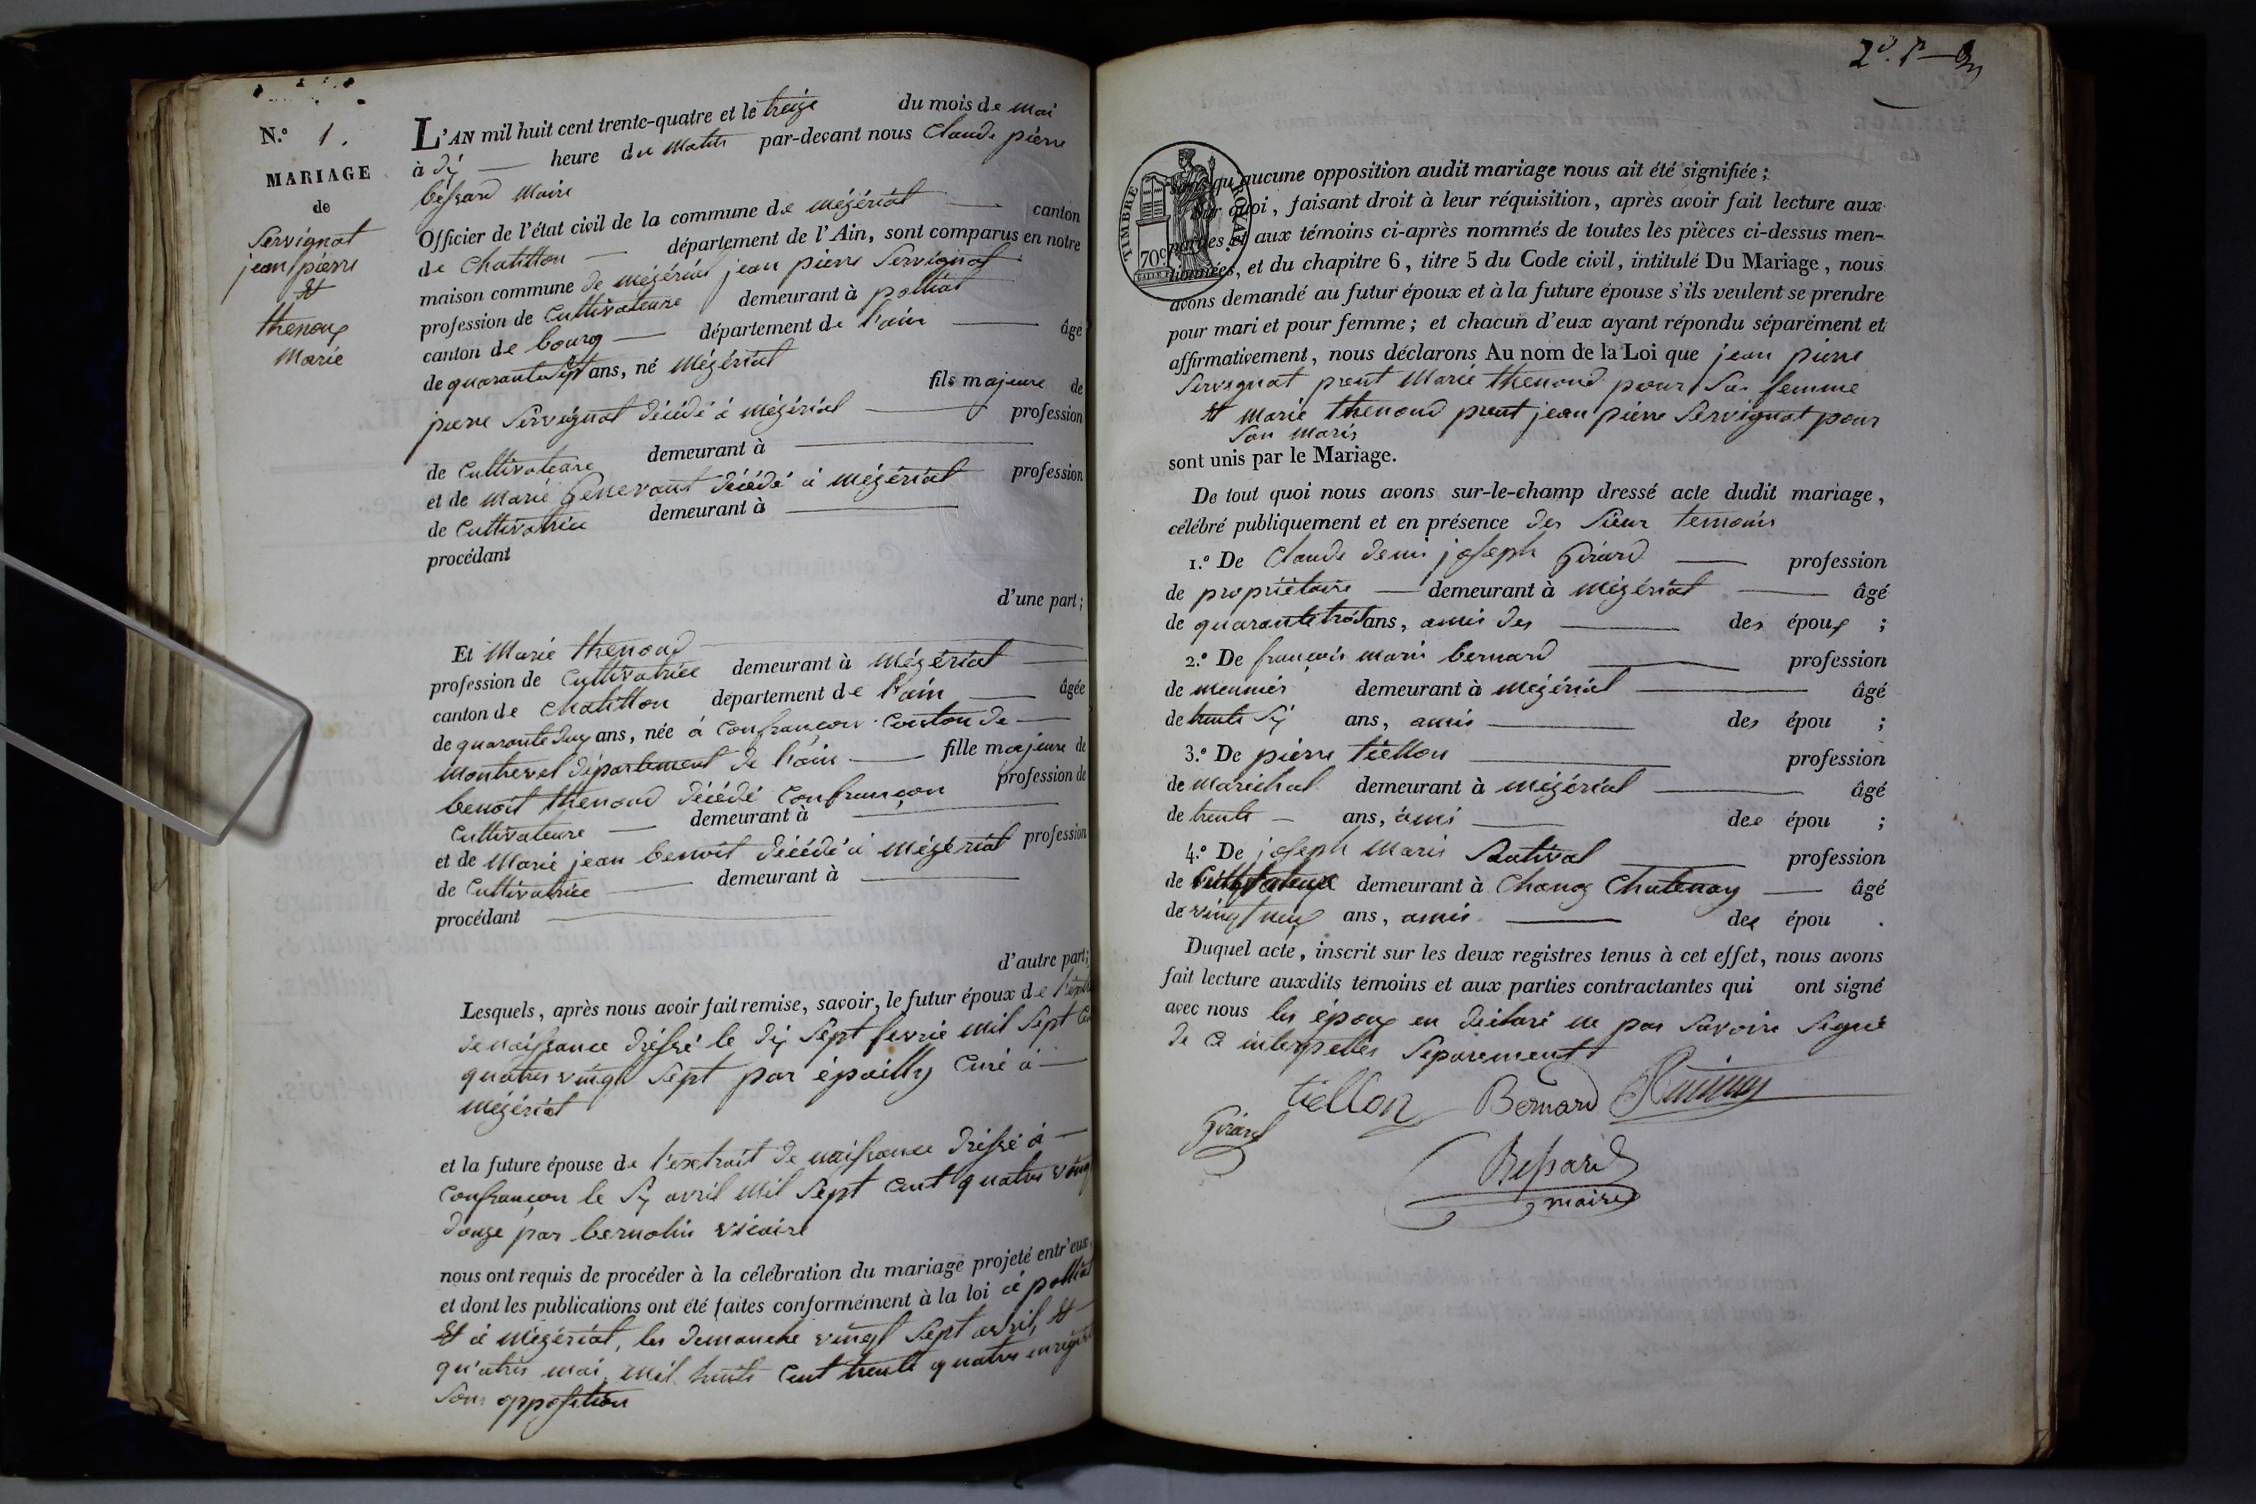 N.° 1.
MARIAGE
de
Servignat
jean pierre
et
thenoux
Marie
L'AN mil huit cent trente-quatre et le treize du mois de mai
à dix heure du Matin par-devant nous Claude pierre
bessard Maire
Officier de l'état civil de la commune de Mézériat canton
de Chatillon département de l'Ain, sont comparus en notre
maison commune de Mézériat jean pierre Servignat
profession de Cultivateure demeurant à polliat
canton de bourg département de l'ain âgé
de quarante sept ans, né Mézériat
fils majeure de
pierre Servignat décédé à Mézériat profession
de Cultivateure demeurant à
et de Marie décédé à Mézériat profession
de Cultivatrice demeurant à
procédant
d'une part;
Et Marie thenoud
profession de Cultivatrice demeurant à Mézériat
canton de Chatillon département de l'ain âgée
de quarante deux ans, née à Confrançon Conton de
Montrevel département de l'ain fille majeure de
benoit thenoud décédé Confrançon profession de
Cultivateure demeurant à
et de Marie jean benoit décédé à Mézériat profession
de Cultivatrice demeurant à
procédant
d'autre part;
Lesquels, après nous avoir fait remise, savoir, le futur époux de
de naissance dréssé le dix Sept fevrie mil Sept
quatres vingt Sept par épailly Curé à
Mézériat
et la future épouse de l'extrait de naissance dréssé à
Confrançon le Six avril Mil Sept Cent quatres ving
douze par bernolin vicaire
nous ont requis de procéder à la célébration du mariage projeté entr'eux,
et dont les publications ont été faites conformément à la loi à polliat
et à Mézériat, les demanche vingt Sept avril, et
qu'atres mai, mil huits Cent trente quatres
Sons opposition
2d. Pn
TIMBRE ROYAL
70c
sans qu'aucune opposition audit mariage nous ait été signifiée;
Sur quoi, faisant droit à leur réquisition, après avoir fait lecture aux
parties et aux témoins ci-après nommés de toutes les pièces ci-dessus men-
tionnées, et du chapitre 6, titre 5 du Code civil, intitulé Du Mariage, nous
avons demandé au futur époux et à la future épouse s'ils veulent se prendre
pour mari et pour femme; et chacun d'eux ayant répondu séparément et
affirmativement, nous déclarons Au nom de la Loi que jean pierre
Servignat prent Marie thenoud pour Sa femme
et Marie thenoud prent jean pierre Servignat pour
Son Maris
sont unis par le Mariage.
De tout quoi nous avons sur-le-champ dressé acte dudit mariage,
célébré publiquement et en présence des Sieur temoins
1.° De Claude denis joseph Girard profession
de propriétaire demeurant à Mézériat âgé
de quarante trois ans, amis des des époux ;
2.° De françois maris bernard profession
de meunier demeurant à Mézériat âgé
de trente Six ans, amis des épou ;
3.° De pierre tiellon profession
de maréchal demeurant à Mézériat âgé
de trente ans, ami des épou ;
4.° De joseph Maris profession
de Cultivateure demeurant à Chanoz Chatenay âgé
de vingt neuf ans, amis des épou .
Duquel acte, inscrit sur les deux registres tenus à cet effet, nous avons
fait lecture auxdits témoins et aux parties contractantes qui ont signé
avec nous les époux en déclaré ne pas Savoire Signé
de Ce interpellés Séparement
tiellon Bernard
Girard
Bessard
maire